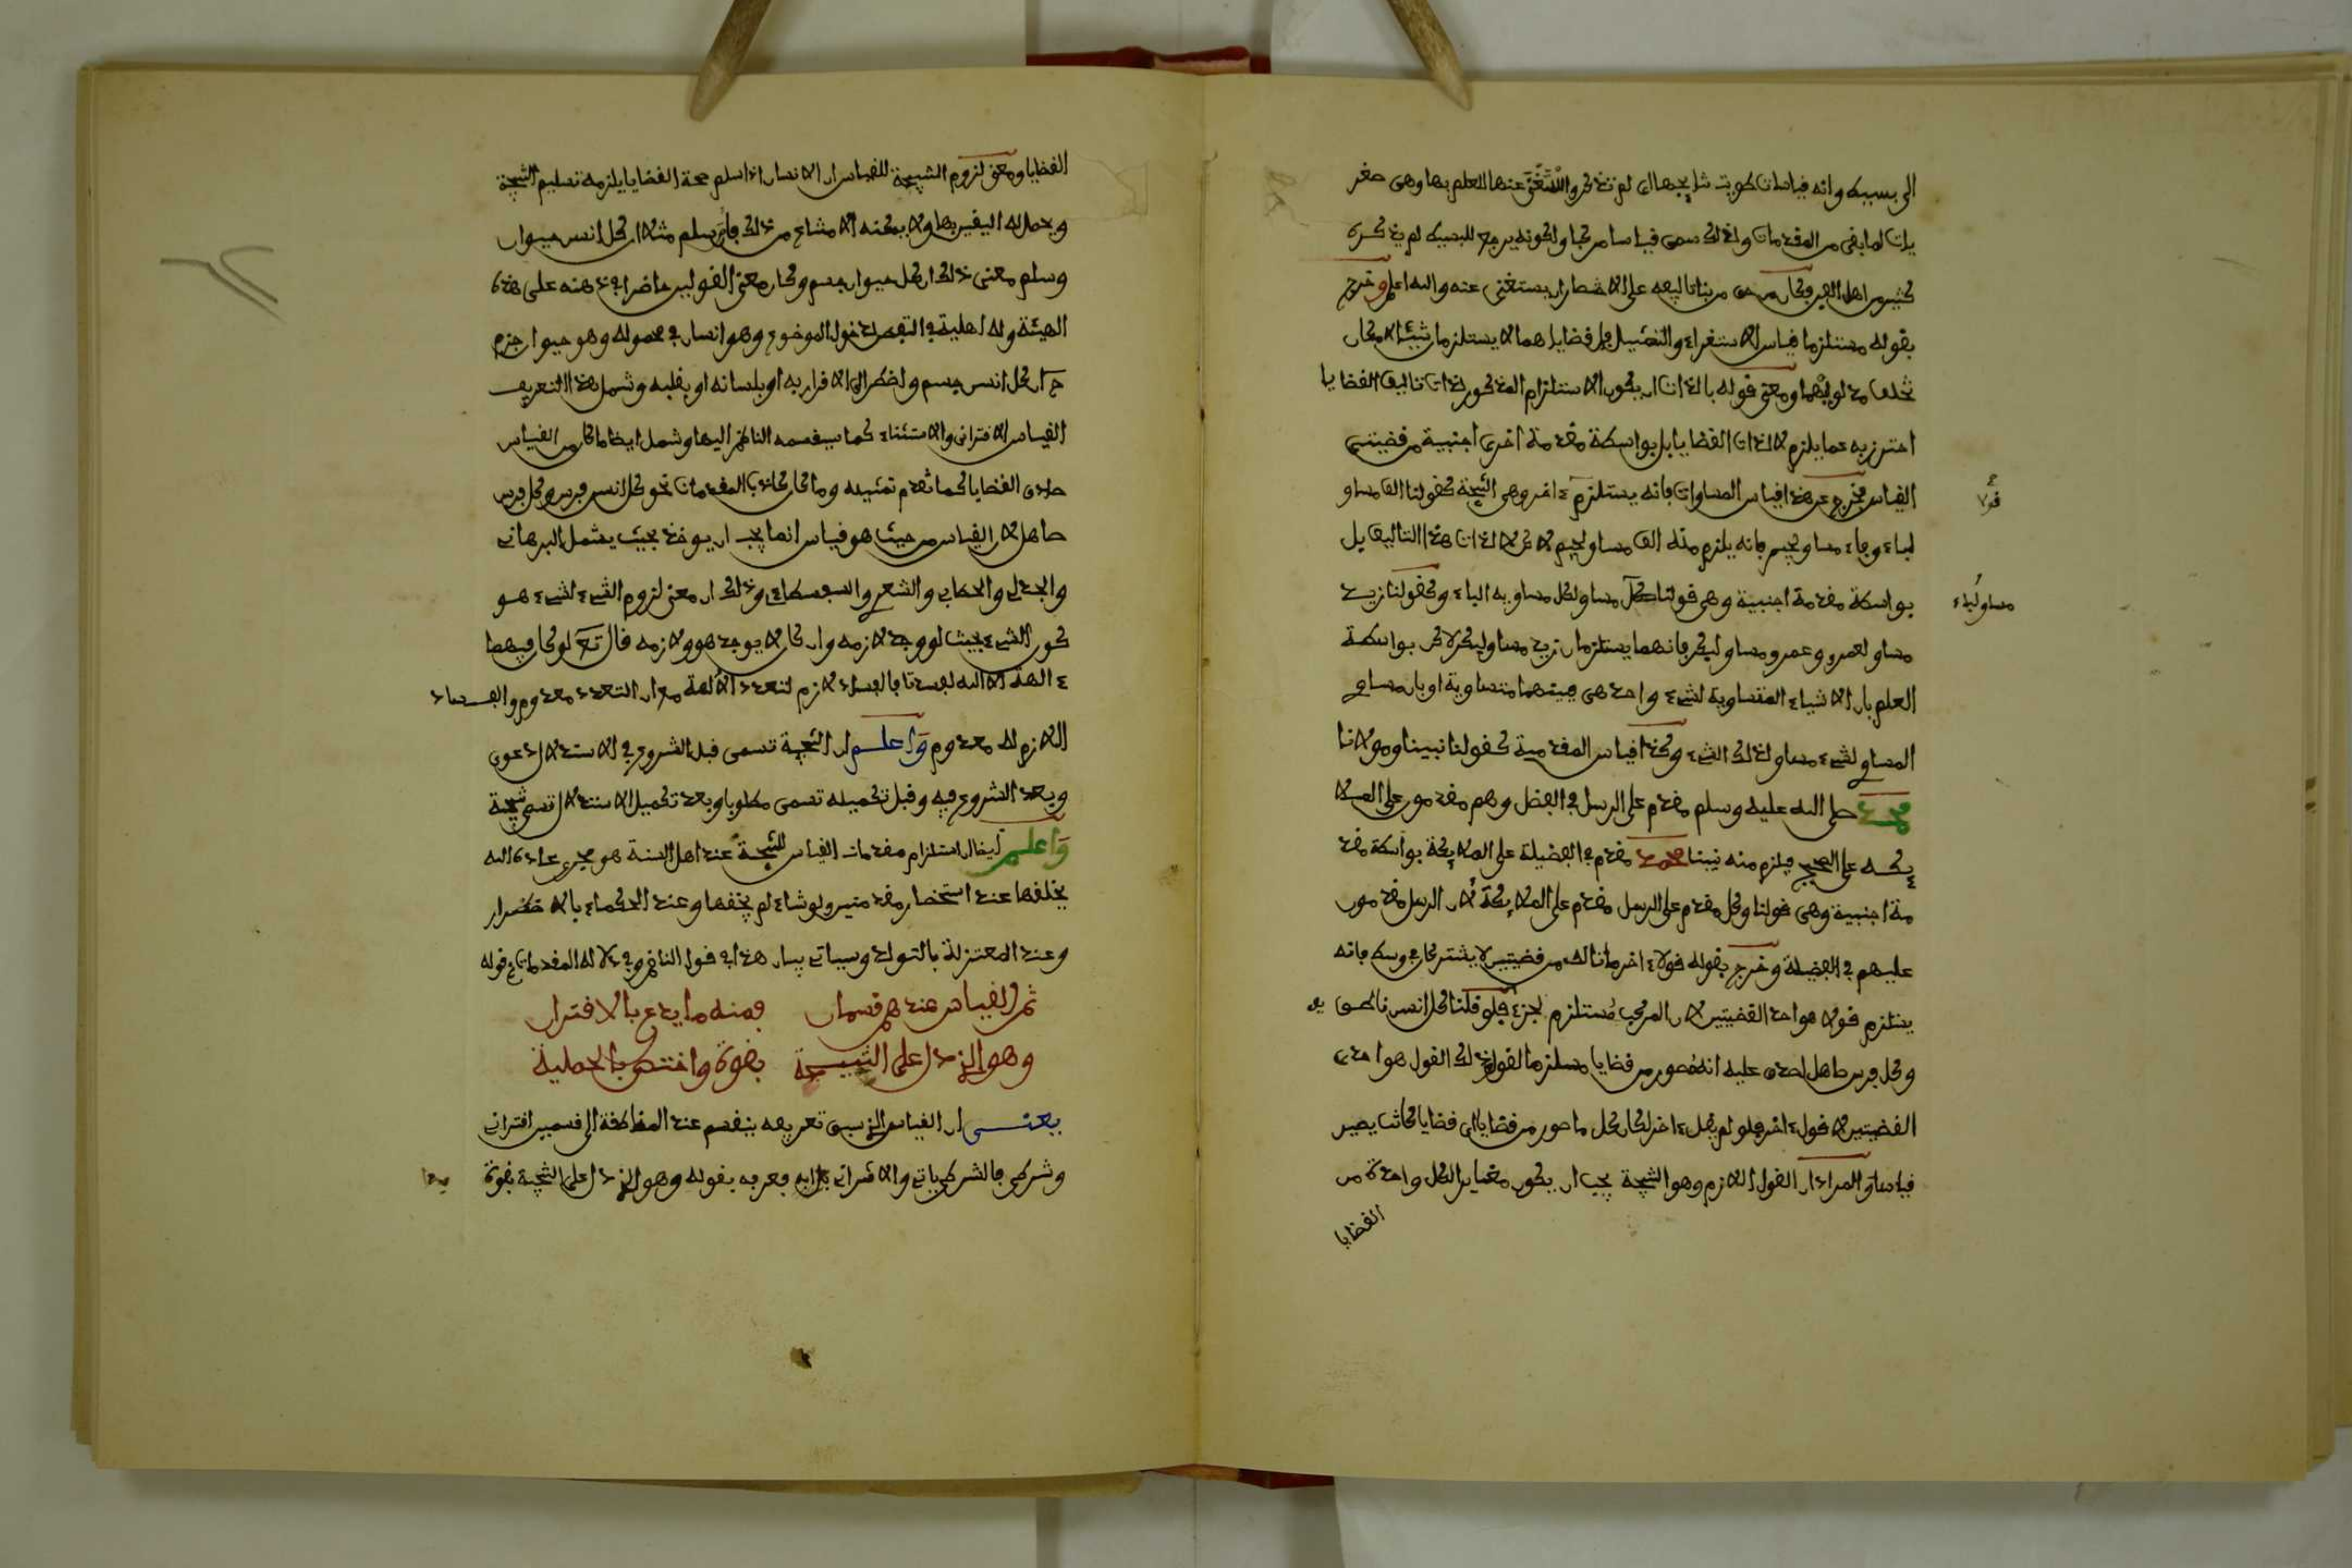 الى بسيك وانه قياسات طويت نتايجها اى لم تذكر واستغنى عنها للعلم بها وهى صغر
يات لما بقى من المقدمات ولذلك سمى قياسا مركبا ولكونه يرجع للبسيط لم يذكره
كثير من اهل الفن وكان من حق مريدنا ليفه على الاختصار ان يستغنى عنه والله اعلم وخرج
بقوله مستلزما قياس الاستقراء والتمثيل فان قضاياهما لا يستلزمان شيئا لامكان
تخلف مدلوليهما ومعنى قوله بالذات ان يكون الاستلزام المذكور لذات تاليف القضايا
احترز به عما يلزم لا لذات القضايا بل بواسطة مقدمة اخرى اجنبية من قضيتى
القياس فيخرج عن هذا قياس المساوات فانه يستلزم ء اخر وهى النتيجة كقولنا الف مساو
لباء وباء مساو لجيم فانه يلزم منه الف مساو لجيم لاكن لا لذات هذا التاليف بل
بواسطة مقدمة اجنبية وهى قولنا كل مساو لكل مساو به الباء وكقولنا زيد
مساو لعمرو وعمرو مساو لبكر فانهما يستلزمان زيد مساو لبكر لاكن بواسطة
العلم بان الاشياء المتساوية لشىء واحد هى فيتهما متساوية او بان مساوى
المساوى لشىء مساو لذلك الشىء وكذا قياس المقدمية كقولنا نبينا ومولانا
محمد صلى الله عليه وسلم مقدم على الرسل فى الفضل وهم مقدمون على الملا
يكه على الصحيح فيلزم منه نبينا محمد مقدم فى الفضيلة على الملايكة بواسطة مقد
مة اجنبية وهى قولنا وكل مقدم على الرسل مقدم على الملايكة لان الرسل مقدمون
عليهم فى الفضيلة وخرج بقوله قولاء اخر ما تالف من قضيتين لا يشتركان فى وسط فانه
يستلزم قولا هو احد القضيتين لان المركب مستلزم لجزءه فلو قلنا كل انسن ناطق
وكل فرس صاهل لصدق عليه انه مصور من قضايا مستلزما لقول وذلك القول هو احدى
القضيتين لا قول ء اخر فلو لم يقل ء اخر لكان كل ما صور من قضايا اى قضايا كانت يصير
قياسا والمراد ان القول اللازم وهو النتيجة يجب ان يكون مغايرا لكل واحدة من
القضايا
قولا
مساو لباء
القضايا ومعنى لزوم النتيجة للقياس ان الانسان اذا سلم صحة القضايا يلزمه تسليم النتيجة
ويحصل له اليقين بها ولا يمكنه الامتناع من ذلك فاذا سلم مثلا ان كل انسن حيوان
وسلم معنى ذلك ان كل حيوان جسم وكان معنى القولين حاضرا فى ذهنه على هذه
الهيئة وله اهلية فى التفطن لدخول الموضوع وهو انسان فى محموله وهو حيوان جزم
ح ان كل انسن جسم واضطر الى الاقرار به او بلسانه او بقلبه وشمل هذا التعريف
القياس الاقترانى والاستثناء كما سيقسمه الناظم اليها وشمل ايضا ما كان من القياس
صادق القضايا كما تقدم تمثيله وما كان كاذب المقدمات نحو كل انسن فرس وكل فرس
صاهل لان القياس من حيث هو قياس انما يجب ان يوخذ بحيث يشمل البرهانى
والجدلى والخطابى والشعرى والسفسطاءى وذلك ان معنى لزوم الشىء لشىء هو
كون الشىء بحيث لو وجد لازمه وان كان لا يوجد هو ولا زمه قال تع لو كان فيهما
ء الهة الا الله لفسدتا فالفساد لازم لتعدد الالهة مع ان التعدد معدوم والفساد
اللازم له معدوم واعلم ان النتيجة تسمى قبل الشروع فى الاستدلال دعوى
وبعد الشروع فيه وقبل تكميله تسمى مطلوبا وبعد تكميل الاستدلال تسمى نتيجة
واعلم ايضا ان استلزام مقدمات القياس للنتيجة عند اهل السنة هو مجرى عادة الله
يخلقها عند استحضار مقدمتين ولو شاء لم يخلقها وعند الحكماء بالاضطرار
وعند المعتزلة بالتولد وسياتى بيان هذا فى قول الناظم وفى دلالة المقدمات قوله
ثم القياس عندهم قسمان فمنه ما يدعى بالاقتران
وهو الذى دل على النتيجة بقوة واختص بالحملية
يعنى ان القياس الذى سبق تعريفه ينقسم عند المناطقة الى قسمين اقترانى
وشرطى فالشرطى ياتى والاقترانى بدا به فعرفه بقوله وهو الذى دل على النتيجة بقوة